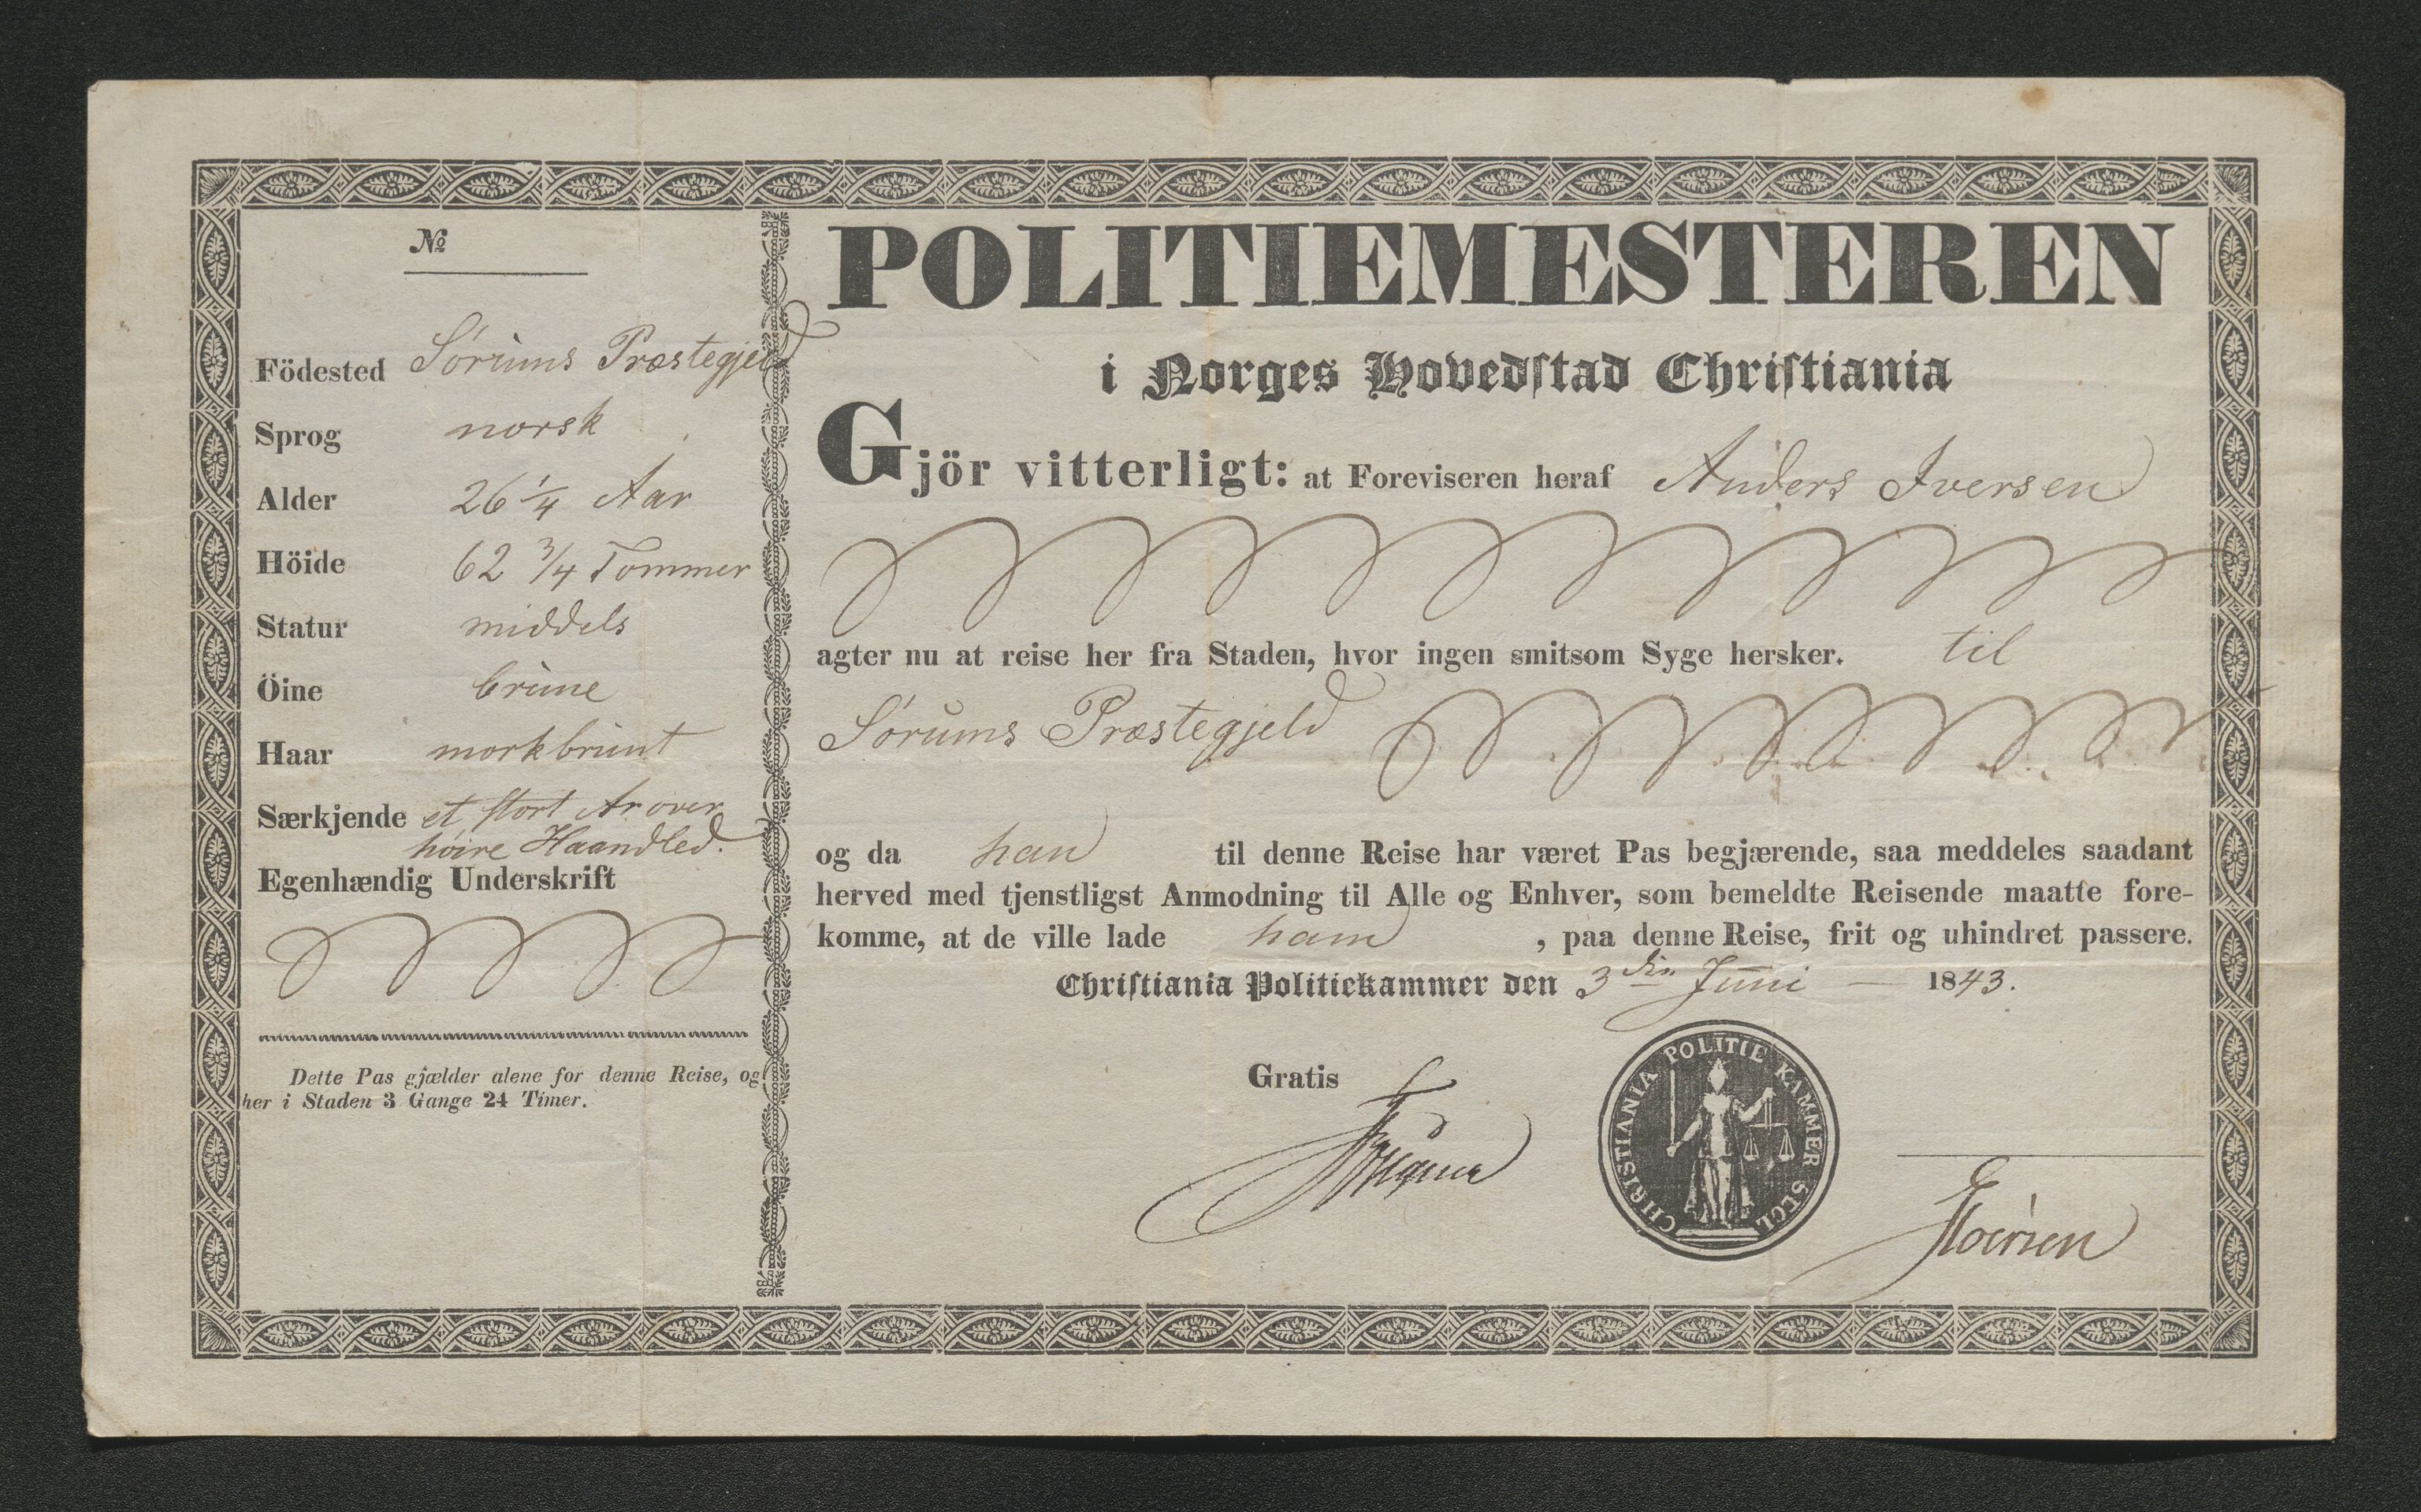 №
Födested Sörums Præstegjeld
Sprog norsk
Alder 26 1/4 Aar
Höide 62 3/4 Tommer
Statur middels
Öine brune
Haar mörkbrunt
Særkjende et stort Ar over
höire Haandled.
Egenhændig Underskrift
Dette Pas gjælder alene for denne Reise, og
her i Staden 3 Gange 24 Timer.
POLITIEMESTEREN
i Norges Hovedſtad Chriſtiania
Gjör vitterligt: at Foreviseren heraf Anders Iversen
agter nu at reise her fra Staden, hvor ingen smitsom Syge hersker. til
Sörums Præstegjeld
og da han til denne Reise har været Pas begjærende, saa meddeles saadant
herved med tjenstligst Anmodning til Alle og Enhver, som bemeldte Reisende maatte fore-
komme, at de ville lade ham , paa denne Reise, frit og uhindret passere.
Chriſtiania Politiekammer den 3die Juni 1843.
Gratis
CHRISTIANIA POLITIE KAMMER SEGL